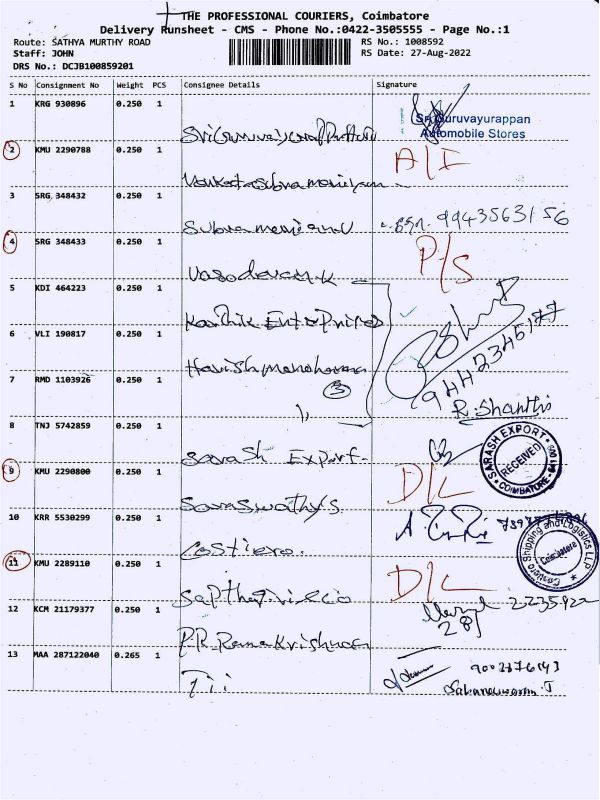 THE PROFESSIONAL COURIERS, Coimbatore
Delivery Runsheet - CMS - Phone No.:0422-3505555 - Page No.:1
Route: SATHYA MURTHY ROAD
RS No.: 1008592
Staff: JOHN
RS Date: 27-Aug-2022
DRS No.: DCJB100859201
S No Consignment No Weight PCS Consignee Details Signature
1 KRG 930896 0.250 1
Sri Guruvayurappan
Automobile Stores
2 KMU 2290788 0.250 1 A/I
3 SRG 348432 0.250 1
9943563156
4 SRG 348433 0.250 1 P/S
Vasodevan.K
5 KDI 464223 0.250 1
Karthik Enterprises
6 VLI 190817 0.250 1
9442345177
Harish manoharan
7 RMD 1103926 0.250 1
3
R. Shanthi
8 TNJ 5742859 0.250 1
Sarash Export
SARASH EXPORT
RECEIVED
COIMBATORE
9 KMU 2290800 0.250 1 D/L
Saraswathy S
10 KRR 5530299 0.250 1
Costiero.
Costiero Shipping and Logistics LLP
Coimbatore
11 KMU 2289110 0.250 1 D/L
12 KCM 21179377 0.250 1
281
P.R. Ramakrishnan
13 MAA 287122040 0.265 1